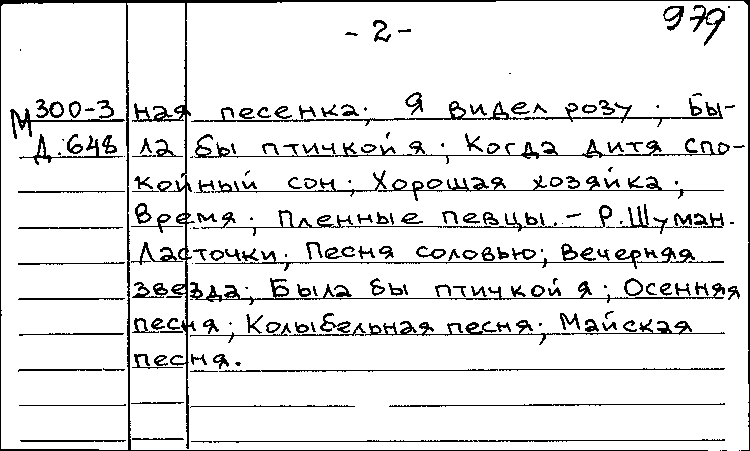 - 2 -
979
М300-3
Д.648
ная песенка; Я видел розу; Бы-
ла бы птичкой я; Когда дитя спо-
койный сон; Хорошая хозяйка;
Время; Пленные певцы. - Р.Шуман.
Ласточки; Песня соловью; Вечерняя
звезда; Была бы птичкой я; Осенняя
песня; Колыбельная песня; Майская
песня.